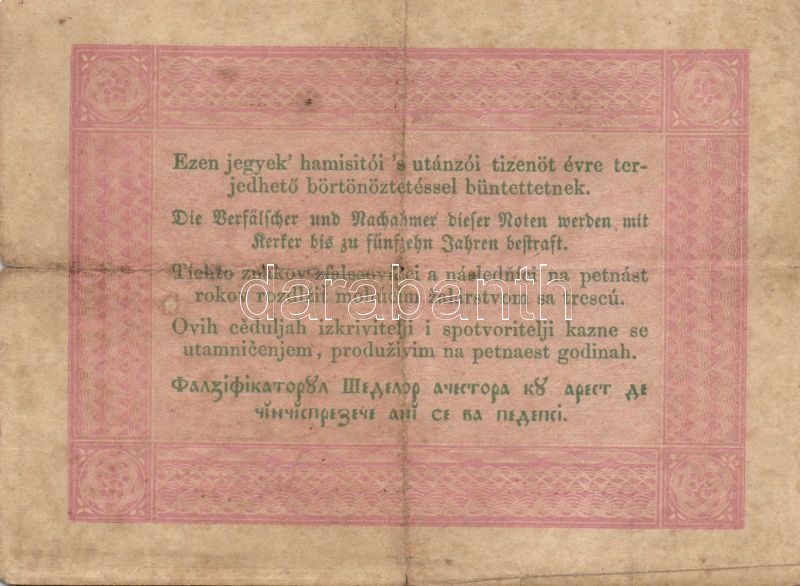 Ezen jegyek' hamisitói 's utánzói tizenöt évre ter-
jedhető börtönöztetéssel büntettetnek.
Die Verfälscher und Nachahmer dieser Noten werden mit
Kerker bis zu fünfzehn Jahren bestraft.
Tíchto znakov zfalšovníci a následníci na petnást
rokov rozdlžiť mohúcim žalárstvom sa trescú.
darabanth
Ovih cèduljah izkrivitelji i spotvoritelji kazne se
utamničenjem, produživim na petnaest godinah.
Фалзіфікаторȣл Шеделор ачестора кȣ арест де
чінчіспрезече ані се ва педепсі.